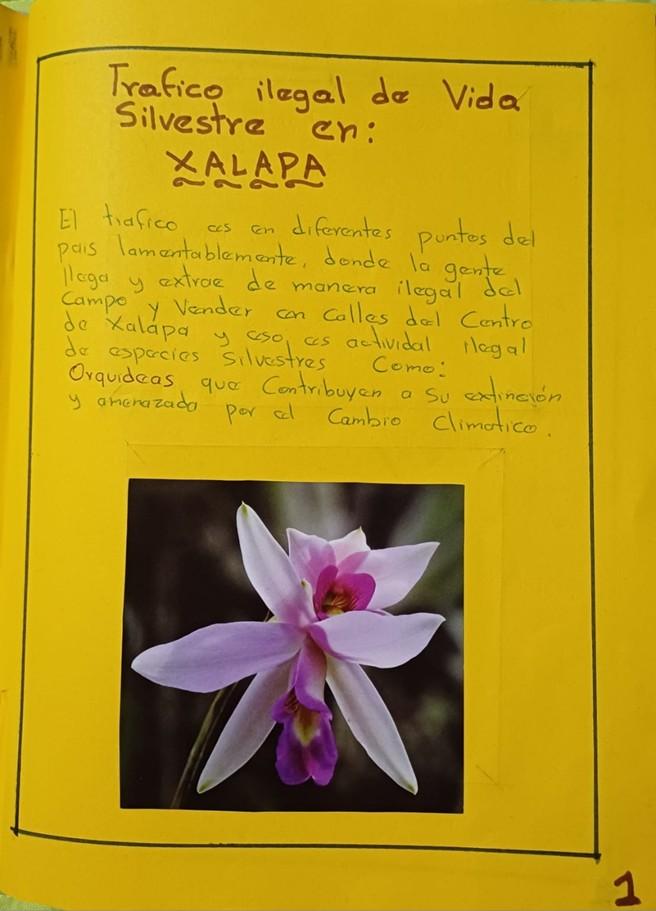 Trafico ilegal de Vida
Silvestre en:
XALAPA
El trafico es en diferentes puntos del
pais lamentablemente, donde la gente
llega y extrae de manera ilegal del
Campo y Vender en Calles del Centro
de Xalapa y eso es actividal ilegal
de especies Silvestres Como:
Orquideas que Contribuyen a Su extinción
y amenazada por el Cambio Climatico.
1